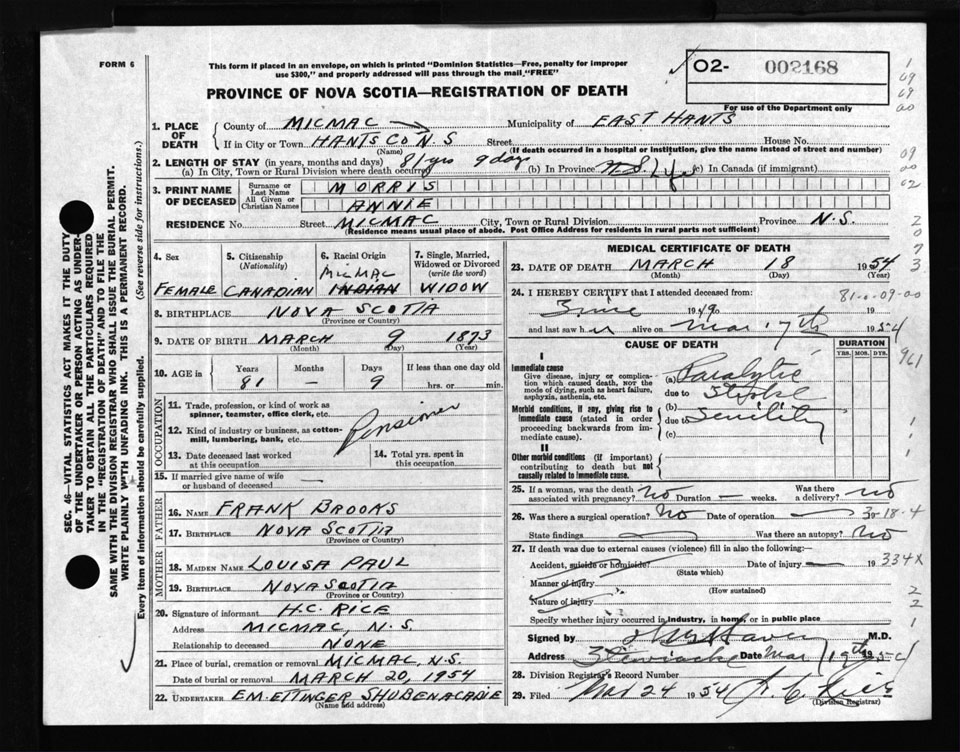 FORM 6
This form if placed in an envelope, on which is printed "Dominion Statistics—Free, penalty for improper
use $300," and properly addressed will pass through the mail "FREE"
PROVINCE OF NOVA SCOTIA—REGISTRATION OF DEATH
O2- 002168
For use of the Department only
1. PLACE OF DEATH
County of MICMAC Municipality of EAST HANTS
If in City or Town HANTS CO N.S Street House No.
(Name) (If death occurred in a hospital or institution, give the name instead of street and number)
2. LENGTH OF STAY (in years, months and days) 81 yrs 9 days
(a) In City, Town or Rural Division where death occurred (b) In Province N.S. Life (c) In Canada (if immigrant)
3. PRINT NAME OF DECEASED
Surname or Last Name MORRIS
All Given or Christian Names ANNIE
RESIDENCE No. Street MICMAC City, Town or Rural Division Province N.S.
(Residence means usual place of abode. Post Office Address for residents in rural parts not sufficient)
4. Sex FEMALE
5. Citizenship (Nationality) CANADIAN
6. Racial Origin MICMAC INDIAN
7. Single, Married, Widowed or Divorced (write the word) WIDOW
8. BIRTHPLACE NOVA SCOTIA
(Province or Country)
9. DATE OF BIRTH MARCH 9 1873
(Month) (Day) (Year)
10. AGE in Years 81 Months — Days 9 If less than one day old hrs. or min.
OCCUPATION
11. Trade, profession, or kind of work as spinner, teamster, office clerk, etc.
Pensioner
12. Kind of industry or business, as cotton-mill, lumbering, bank, etc.
13. Date deceased last worked at this occupation
14. Total yrs. spent in this occupation
15. If married give name of wife or husband of deceased —
FATHER
16. NAME FRANK BROOKS
17. BIRTHPLACE NOVA SCOTIA
(Province or Country)
MOTHER
18. MAIDEN NAME LOUISA PAUL
19. BIRTHPLACE NOVA SCOTIA
(Province or Country)
20. Signature of informant H.C. RICE
Address MICMAC N.S.
Relationship to deceased NONE
21. Place of burial, cremation or removal MICMAC, N.S.
Date of burial or removal MARCH 20, 1954
22. UNDERTAKER E.M. ETTINGER SHUBENACADIE
(Name and address)
MEDICAL CERTIFICATE OF DEATH
23. DATE OF DEATH MARCH 18 1954
(Month) (Day) (Year)
24. I HEREBY CERTIFY that I attended deceased from: 81-0-09-00
1949 to 19
and last saw h alive on Mar 17th 1954
CAUSE OF DEATH
DURATION
YRS. MOS. DYS.
I
Immediate cause
Give disease, injury or complication which caused death, NOT the mode of dying, such as heart failure, asphyxia, asthenia, etc.
(a) Paralytic
due to Stroke
Morbid conditions, if any, giving rise to immediate cause (stated in order proceeding backwards from immediate cause).
(b)
due to Senility
(c)
II
Other morbid conditions (if important) contributing to death but not causally related to immediate cause.
25. If a woman, was the death associated with pregnancy? No Duration — weeks. Was there a delivery? no
26. Was there a surgical operation? No Date of operation — 3-18-4
State findings Was there an autopsy? No
27. If death was due to external causes (violence) fill in also the following:—
Accident, suicide or homicide? Date of injury — 19 334X
(State which)
Manner of injury
(How sustained)
Nature of injury
Specify whether injury occurred in industry, in home, or in public place
Signed by M.D.
Address Stewiacke Date Mar 19th 1954
28. Division Registrar's Record Number
29. Filed Mar 24 1954 H. C. Rice
(Division Registrar)
SEC. 46—VITAL STATISTICS ACT MAKES IT THE DUTY
OF THE UNDERTAKER OR PERSON ACTING AS UNDER-
TAKER TO OBTAIN ALL THE PARTICULARS REQUIRED
IN THE "REGISTRATION OF DEATH" AND TO FILE THE
SAME WITH THE DIVISION REGISTRAR WHO SHALL ISSUE THE BURIAL PERMIT.
WRITE PLAINLY WITH UNFADING INK. THIS IS A PERMANENT RECORD.
Every item of information should be carefully supplied. (See reverse side for instructions.)